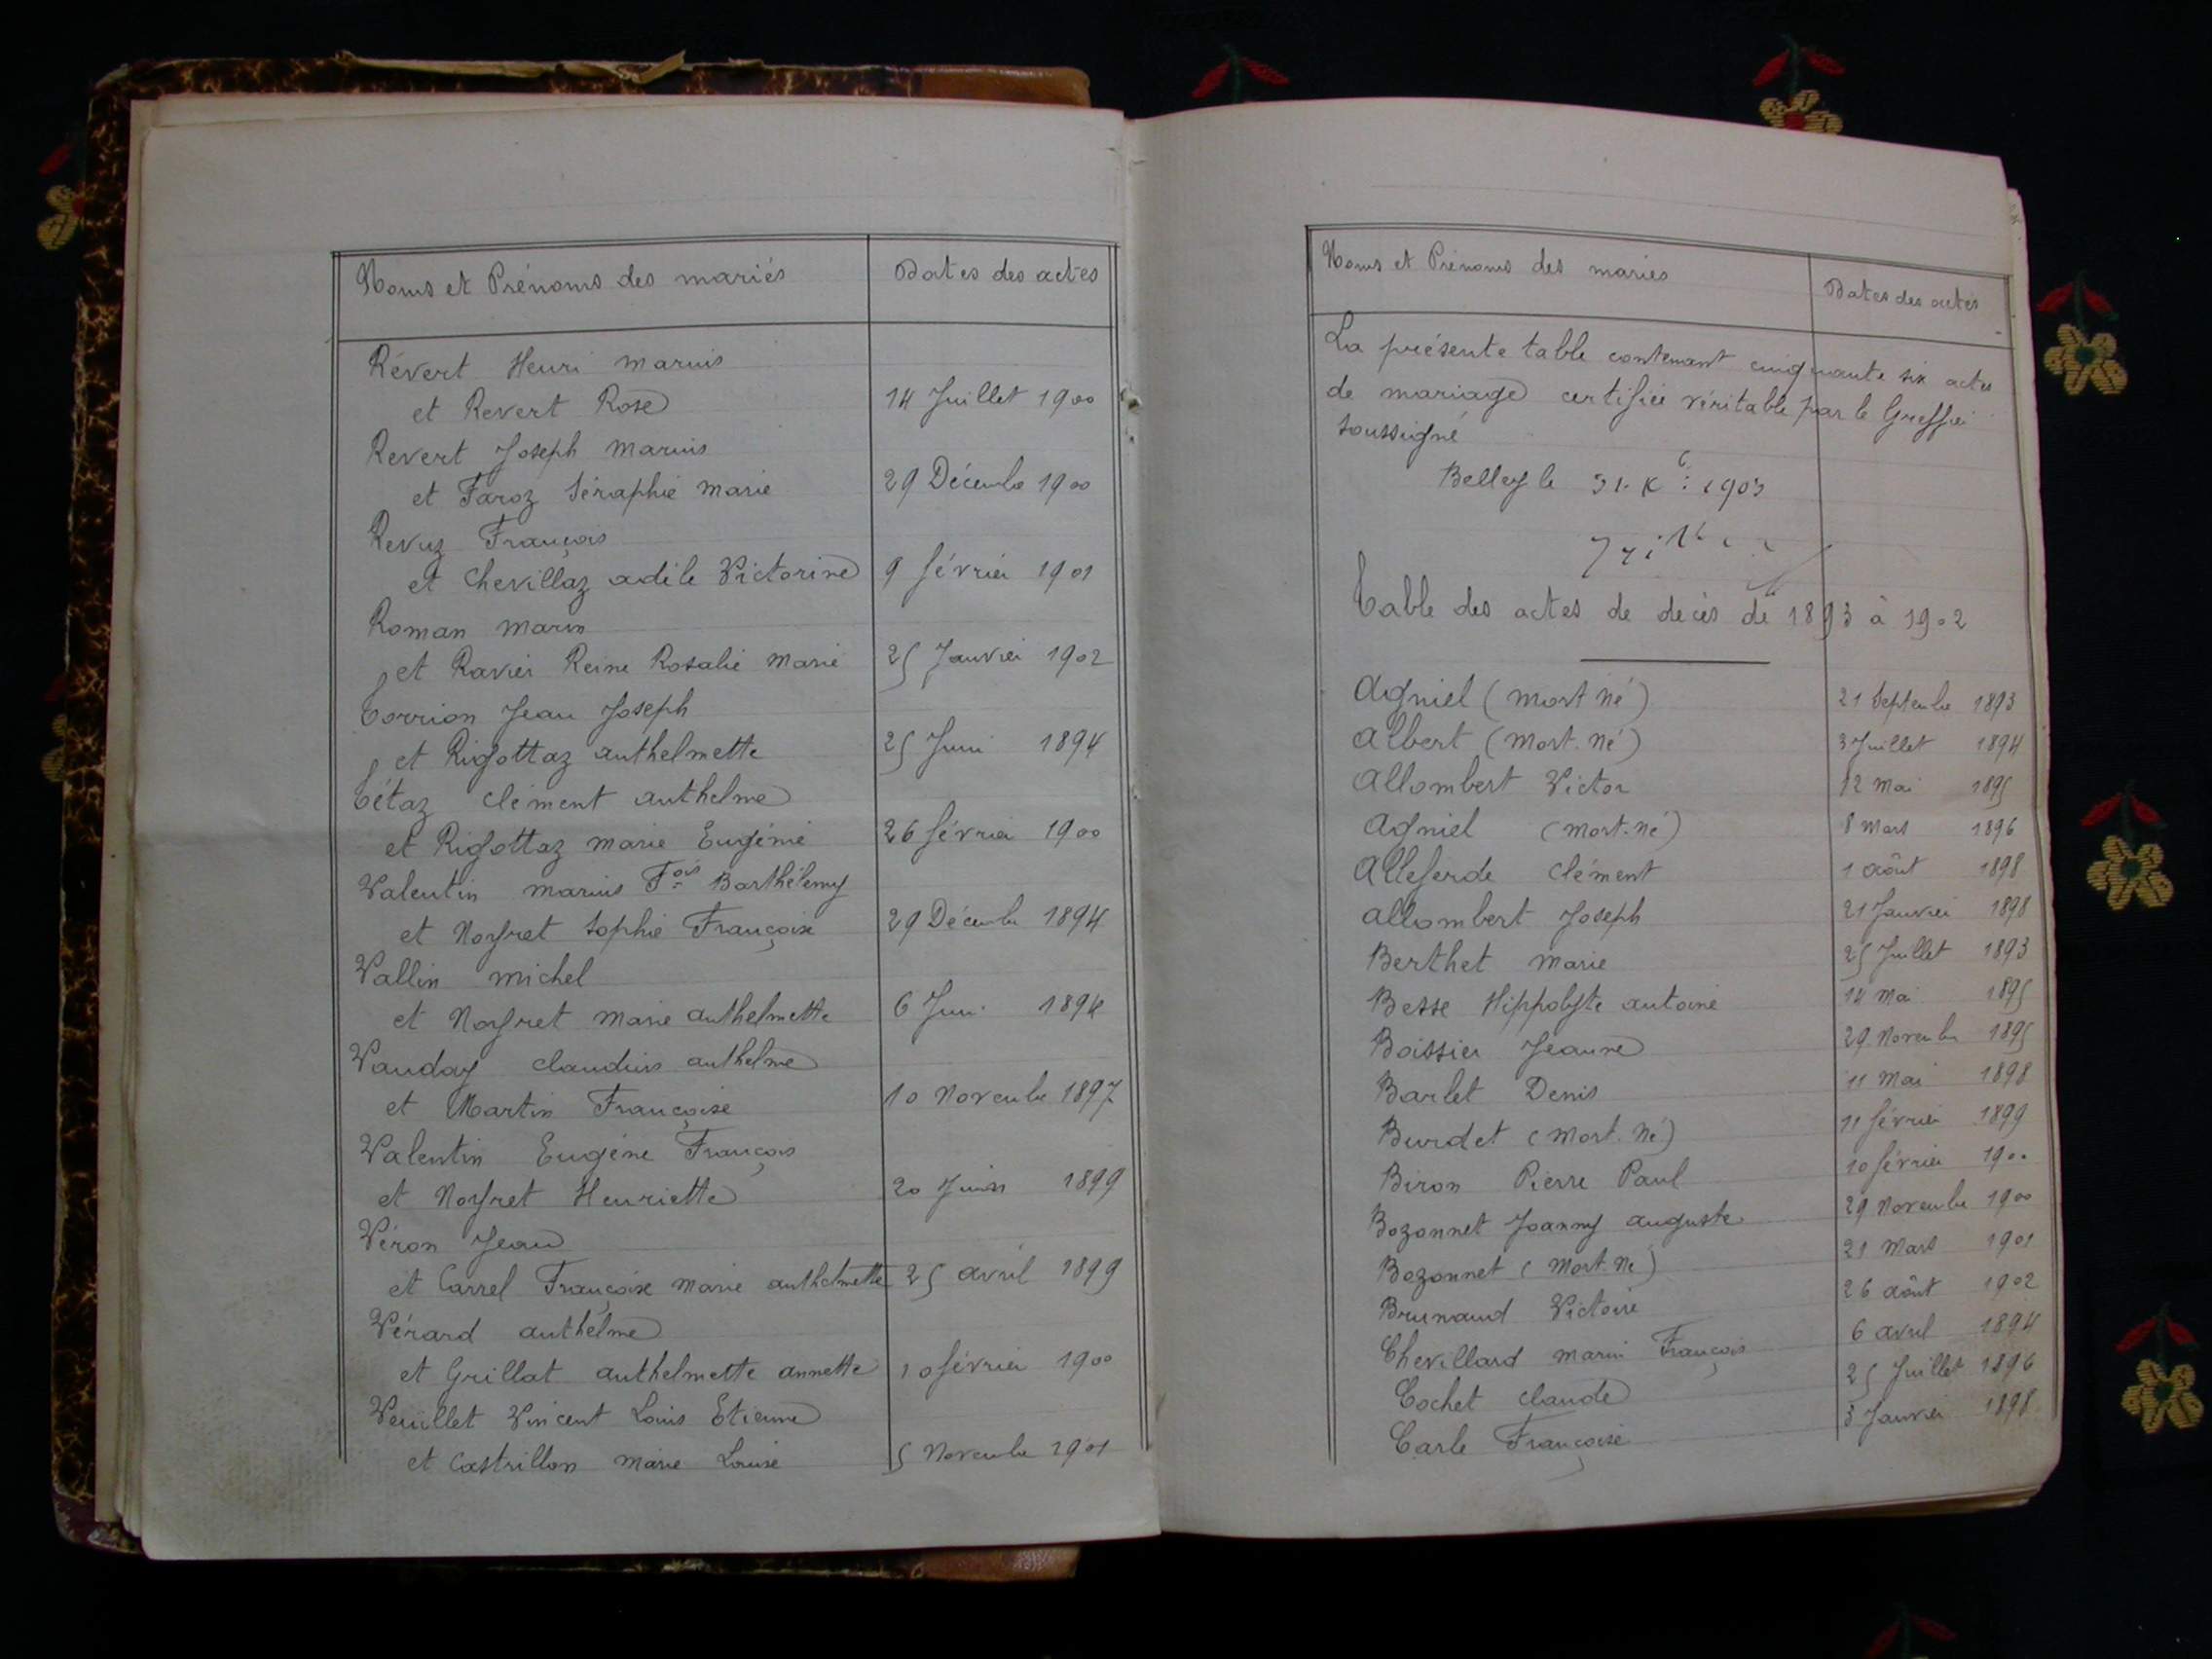 Noms et Prénoms des mariés Dates des actes
Révert Henri Marius
et Revert Rose 14 Juillet 1900
Revert Joseph Marius
et Faroz Séraphie Marie 29 Décembre 1900
Revuz François
et Chevillaz adèle Victorine 9 février 1901
Roman Marin
et Ravier Reine Rosalie Marie 25 Janvier 1902
Torrion Jean Joseph
et Rigottaz anthelmette 25 Juin 1894
Tétaz Clément anthelme
et Rigottaz Marie Eugénie 26 février 1900
Valentin Marius Fois Barthélemy
et Noyret Sophie Françoise 29 Décembre 1894
Vallin Michel
et Noyret Marie anthelmette 6 Juin 1894
Vauday Claudius anthelme
et Martin Françoise 10 Novembre 1897
Valentin Eugène François
et Noyret Henriette 20 Juin 1899
Véron Jean
et Carrel Françoise Marie anthelmette 25 avril 1899
Vérard anthelme
et Grillat anthelmette annette 10 février 1900
Veuillet Vincent Louis Etienne
et Castrillon Marie Louise 5 Novembre 1901
Noms et Prénoms des mariés Dates des actes
La présente table contenant cinquante six actes
de mariage certifiée véritable par le Greffier
soussigné
Belley le 1903
Table des actes de décès de 1893 à 1902
Agniel (Mort né) 21 Septembre 1893
Albert (Mort. Né) 3 Juillet 1894
Allombert Victor 12 Mai 1895
Agniel (Mort. né) 8 Mars 1896
Allegerde Clément 1 août 1898
Allombert Joseph 21 Janvier 1898
Berthet Marie 25 Juillet 1893
Besse Hippolyte antoine 14 Mai 1895
Boissier Jeanne 29 Novembre 1895
Barlet Denis 11 Mai 1898
Burdet (Mort. Né) 11 février 1899
Biron Pierre Paul 10 février 1900
Bozonnet Joanny auguste 29 Novembre 1900
Bozonnet (Mort. Né) 21 Mars 1901
Brunaud Victoire 26 août 1902
Chevillard Marin François 6 avril 1894
Cochet Claude 25 Juillet 1896
Carle Françoise 3 Janvier 1898